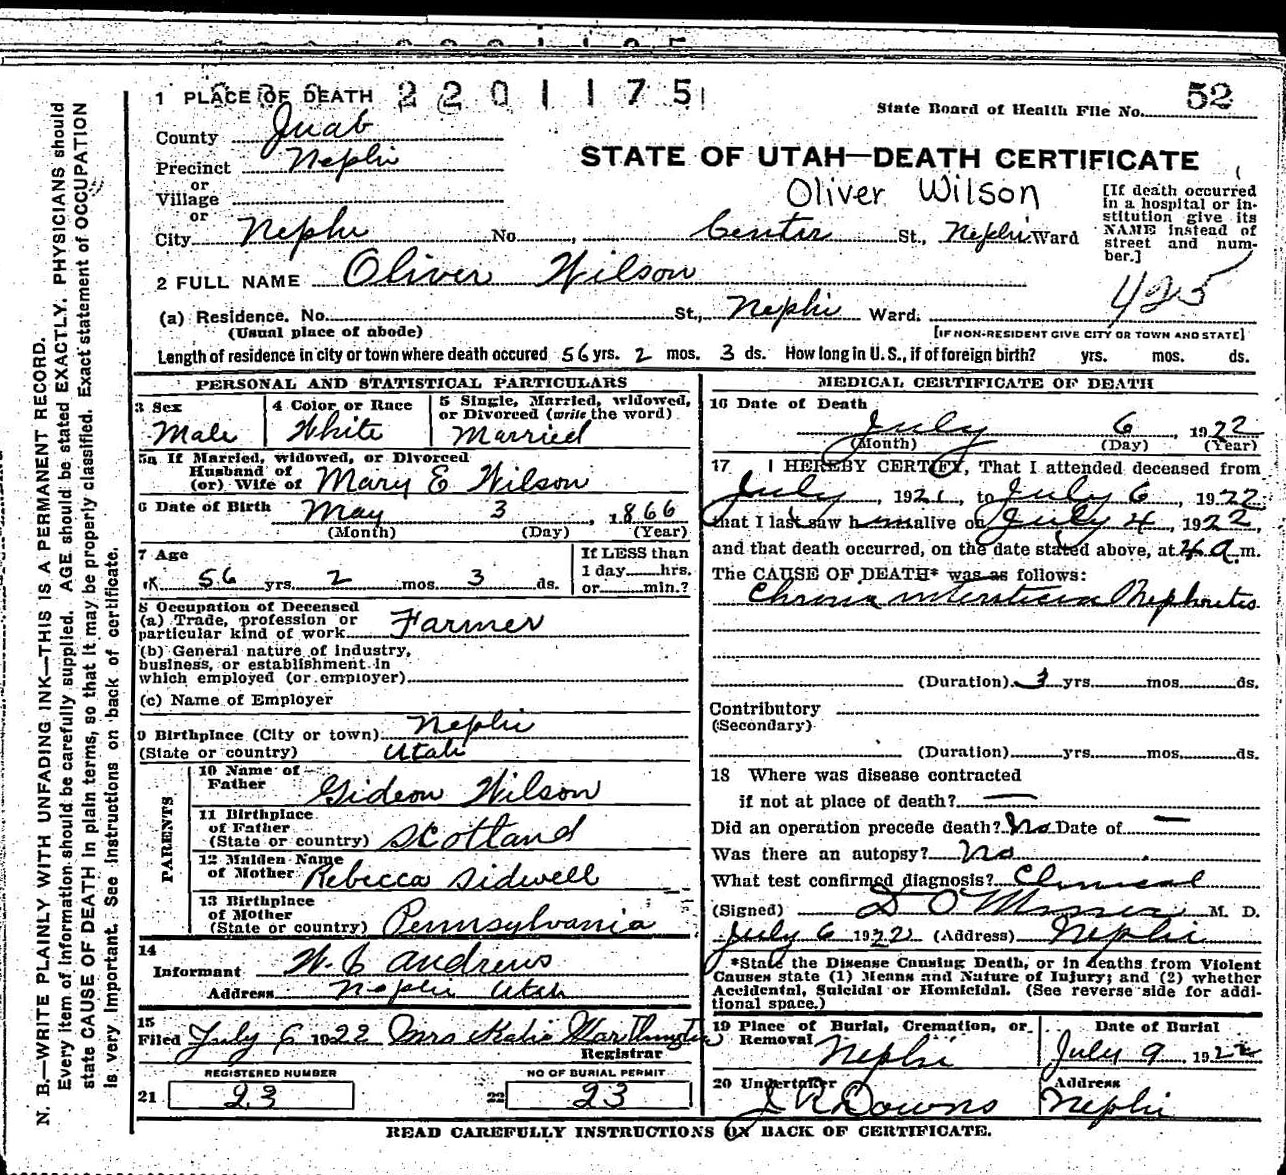 2201175
52
1 PLACE OF DEATH
State Board of Health File No.
County Juab
Precinct Nephi
STATE OF UTAH—DEATH CERTIFICATE
or
Village
or
Oliver Wilson
[If death occurred in a hospital or institution give its NAME instead of street and number.]
City Nephi No. , Center St., Nephi Ward
2 FULL NAME Oliver Wilson
425
(a) Residence. No. St., Nephi Ward.
(Usual place of abode) [IF NON-RESIDENT GIVE CITY OR TOWN AND STATE]
Length of residence in city or town where death occured 56 yrs. 2 mos. 3 ds. How long in U. S., if of foreign birth? yrs. mos. ds.
PERSONAL AND STATISTICAL PARTICULARS
3 Sex
Male
4 Color or Race
White
5 Single, Married, widowed, or Divorced (write the word)
Married
5a If Married, widowed, or Divorced
Husband of
(or) Wife of Mary E Wilson
6 Date of Birth May 3, 1866
(Month) (Day) (Year)
7 Age
56 yrs. 2 mos. 3 ds.
If LESS than
1 day hrs.
or min.?
8 Occupation of Deceased
(a) Trade, profession or
particular kind of work Farmer
(b) General nature of industry,
business, or establishment in
which employed (or employer)
(c) Name of Employer
9 Birthplace (City or town) Nephi
(State or country) Utah
PARENTS
10 Name of
Father Gideon Wilson
11 Birthplace
of Father
(State or country) Scotland
12 Maiden Name
of Mother Rebecca Sidwell
13 Birthplace
of Mother
(State or country) Pennsylvania
14
Informant Andrews
Address Nephi Utah
15
Filed July 6 1922 Mrs Katie
Registrar
REGISTERED NUMBER
21 23
NO OF BURIAL PERMIT
22 23
MEDICAL CERTIFICATE OF DEATH
16 Date of Death
July 6, 1922
(Month) (Day) (Year)
17 I HEREBY CERTIFY, That I attended deceased from
July, 1921, to July 6, 1922
that I last saw him alive on July 4, 1922,
and that death occurred, on the date stated above, at 4 a.m.
The CAUSE OF DEATH* was as follows:
Chronic Nephritis
(Duration) 3 yrs. mos. ds.
Contributory
(Secondary)
(Duration) yrs. mos. ds.
18 Where was disease contracted
if not at place of death? —
Did an operation precede death? No Date of —
Was there an autopsy? No
What test confirmed diagnosis? Clinical
(Signed) M. D.
July 6 1922 (Address) Nephi
*State the Disease Causing Death, or in deaths from Violent
Causes state (1) Means and Nature of Injury; and (2) whether
Accidental, Suicidal or Homicidal. (See reverse side for addi-
tional space.)
19 Place of Burial, Cremation, or
Removal Nephi
Date of Burial
July 9 1922
20 Undertaker
Downs
Address
Nephi
READ CAREFULLY INSTRUCTIONS ON BACK OF CERTIFICATE.
N. B.—WRITE PLAINLY WITH UNFADING INK—THIS IS A PERMANENT RECORD.
Every item of information should be carefully supplied. AGE should be stated EXACTLY. PHYSICIANS should
state CAUSE OF DEATH in plain terms, so that it may be properly classified. Exact statement of OCCUPATION
is very important. See instructions on back of certificate.